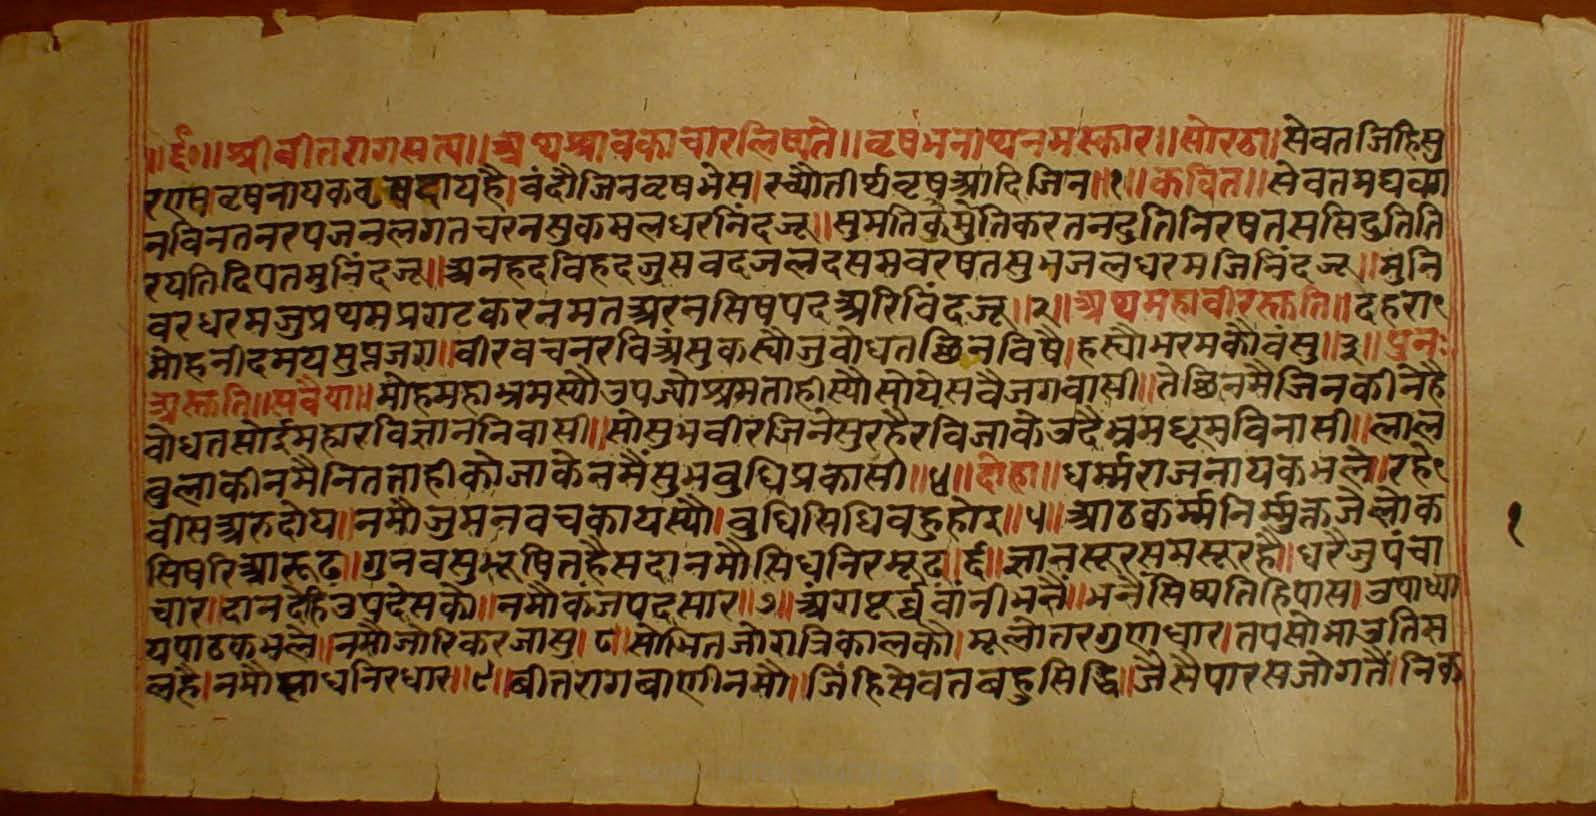 ॥ ६०॥ श्री वीतरागसत्य॥ अथ श्रावकाचारलिष्यते॥ वृषभनाथनमस्कार॥ सोरठा॥ सेवतजिहिसु
रएस। वृषनायकवृषदायहै। वंदौजिनवृषभेस। रच्यौतीर्थवृषआदिजिन॥१॥ कवित॥ सेवतमघवाग
नविनतनरपजनलगतचरनसुकमलधरनिंदजू॥ सुमतिकुमुतिकरतनदुतिनिरषतससिदुतिति
रयतिदिपतमुनिंदजू॥ अनहदविहदजुसवदजलदसमवरषतसुभजलधरमजिनिंदजू॥ मुनि
वरधरमजुप्रथमप्रगटकरनमतअरनसिषपदअरिविंदजू॥२॥ अथमहावीरस्क्तति॥ दहरा
मोहनीदमयसुप्नजग॥ वीरवचनरविअंसुकस्यौजुवोधतछिनविषै। हस्यौभरमकौवंसु॥३॥ पुनः
अस्क्तति॥ सवैया॥ मोहमहाभ्रमस्यौउपज्योश्रमताहीस्यौसोयेसवैजगवासी॥ तेछिनमैजिनकीनेहै
वोधतसोईमहारविज्ञाननिवासी॥ सोसुभवीरजिनेसुरहैरविजाकेउदैभ्रमधूमविनासी॥ लाल
वुलाकीनमैनितताहीकोजाकेनमैंसुभवुधिप्रकासी॥४॥ दोहा॥ धर्म्मराजनायकभले॥ रहे
वीसअरुदोय॥ नमौजुमनवचकायस्यौ। वुधिसिधिवहुहोइ॥५॥ आठकर्म्मनिर्म्मुक्तजैलोक
सिषरिआरूढ॥ गुनवसुभूषितहैसदानमौसिधनिरमूढ॥६॥ ज्ञानसूरसमसूरहौ। धरैजुपंचा
चार॥ दानदैहिउपदेसकौ॥ नमौकंजपदसार॥७॥ अंगपूर्ववांनीभनैं॥ भनैंसिष्यतिहिपास। उपाध्या
यपाठकभले॥ नमौजोरिकरजासु। ८। सोभितजोगत्रिकालकौ। मूलोतरगुणधार। तपसोभाअतिस
लहै। नमौसाधनिरधार॥९॥ वीतरागबाणीनमौ॥ जिंहिसेवतबहुसिद्धि॥ जैसैपारसजोगतैं। निक
१